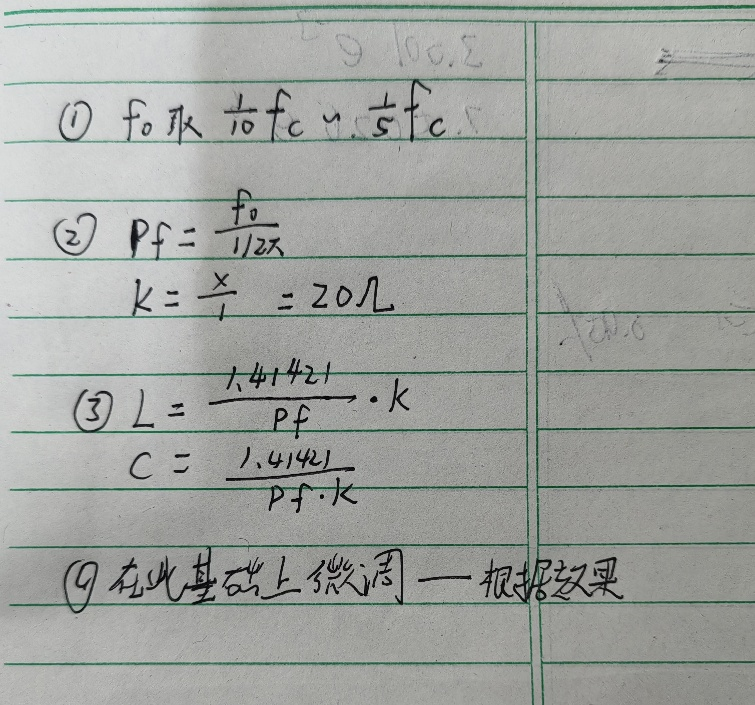 ① f₀取 1/10 fc ~ 1/5 fc
② Pf = f₀/(1/2π)
K = x/1 = 20Ω
③ L = 1.41421/Pf · K
C = 1.41421/(Pf·K)
④ 在此基础上微调 — 根据效果